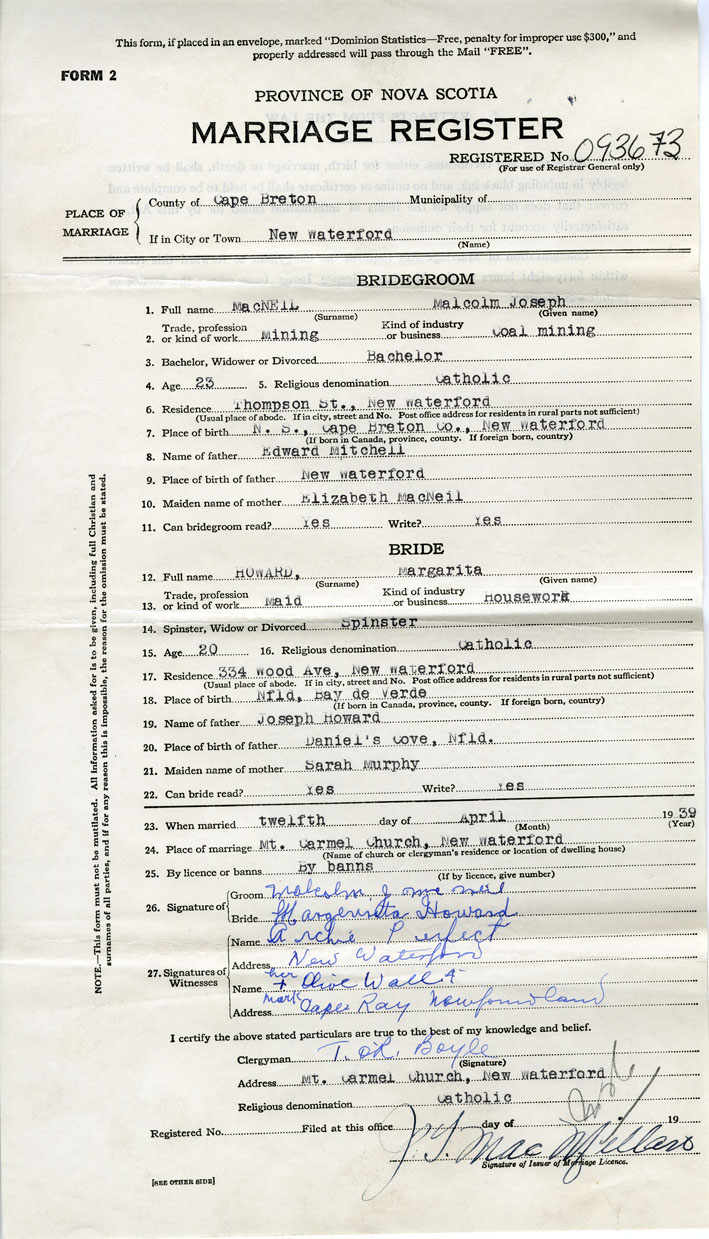 This form, if placed in an envelope, marked "Dominion Statistics—Free, penalty for improper use $300," and
properly addressed will pass through the Mail "FREE".
FORM 2
PROVINCE OF NOVA SCOTIA
MARRIAGE REGISTER
REGISTERED No. 093673
(For use of Registrar General only)
PLACE OF MARRIAGE
County of Cape Breton Municipality of
If in City or Town New Waterford
(Name)
BRIDEGROOM
1. Full name MacNEIL Malcolm Joseph
(Surname) (Given name)
2. Trade, profession or kind of work Mining Kind of industry or business Coal mining
3. Bachelor, Widower or Divorced Bachelor
4. Age 23 5. Religious denomination Catholic
6. Residence Thompson St., New Waterford
(Usual place of abode. If in city, street and No. Post office address for residents in rural parts not sufficient)
7. Place of birth N. S., Cape Breton Co., New Waterford
(If born in Canada, province, county. If foreign born, country)
8. Name of father Edward Mitchell
9. Place of birth of father New Waterford
10. Maiden name of mother Elizabeth MacNeil
11. Can bridegroom read? Yes Write? Yes
BRIDE
12. Full name HOWARD, Margarita
(Surname) (Given name)
13. Trade, profession or kind of work Maid Kind of industry or business Housework
14. Spinster, Widow or Divorced Spinster
15. Age 20 16. Religious denomination Catholic
17. Residence 334 Wood Ave, New Waterford
(Usual place of abode. If in city, street and No. Post office address for residents in rural parts not sufficient)
18. Place of birth Nfld, Bay de Verde
(If born in Canada, province, county. If foreign born, country)
19. Name of father Joseph Howard
20. Place of birth of father Daniel's Cove, Nfld.
21. Maiden name of mother Sarah Murphy
22. Can bride read? Yes Write? Yes
23. When married twelfth day of April 1939
(Month) (Year)
24. Place of marriage Mt. Carmel Church, New Waterford
(Name of church or clergyman's residence or location of dwelling house)
25. By licence or banns By banns
(If by licence, give number)
26. Signature of
Groom Malcolm J Mc Neil
Bride Margereta Howard
27. Signatures of Witnesses
Name Archie Perfect
Address New Waterford
her
Name + Olive Wall
mark
Address Cape Ray Newfoundland
I certify the above stated particulars are true to the best of my knowledge and belief.
Clergyman T. O'R. Boyle
(Signature)
Address Mt. Carmel Church, New Waterford
Religious denomination Catholic
Registered No. Filed at this office day of 19
J. G. Mac
Signature of Issuer of Marriage Licence.
[SEE OTHER SIDE]
NOTE.—This form must not be mutilated. All information asked for is to be given, including full Christian and
surnames of all parties, and if for any reason this is impossible, the reason for the omission must be stated.